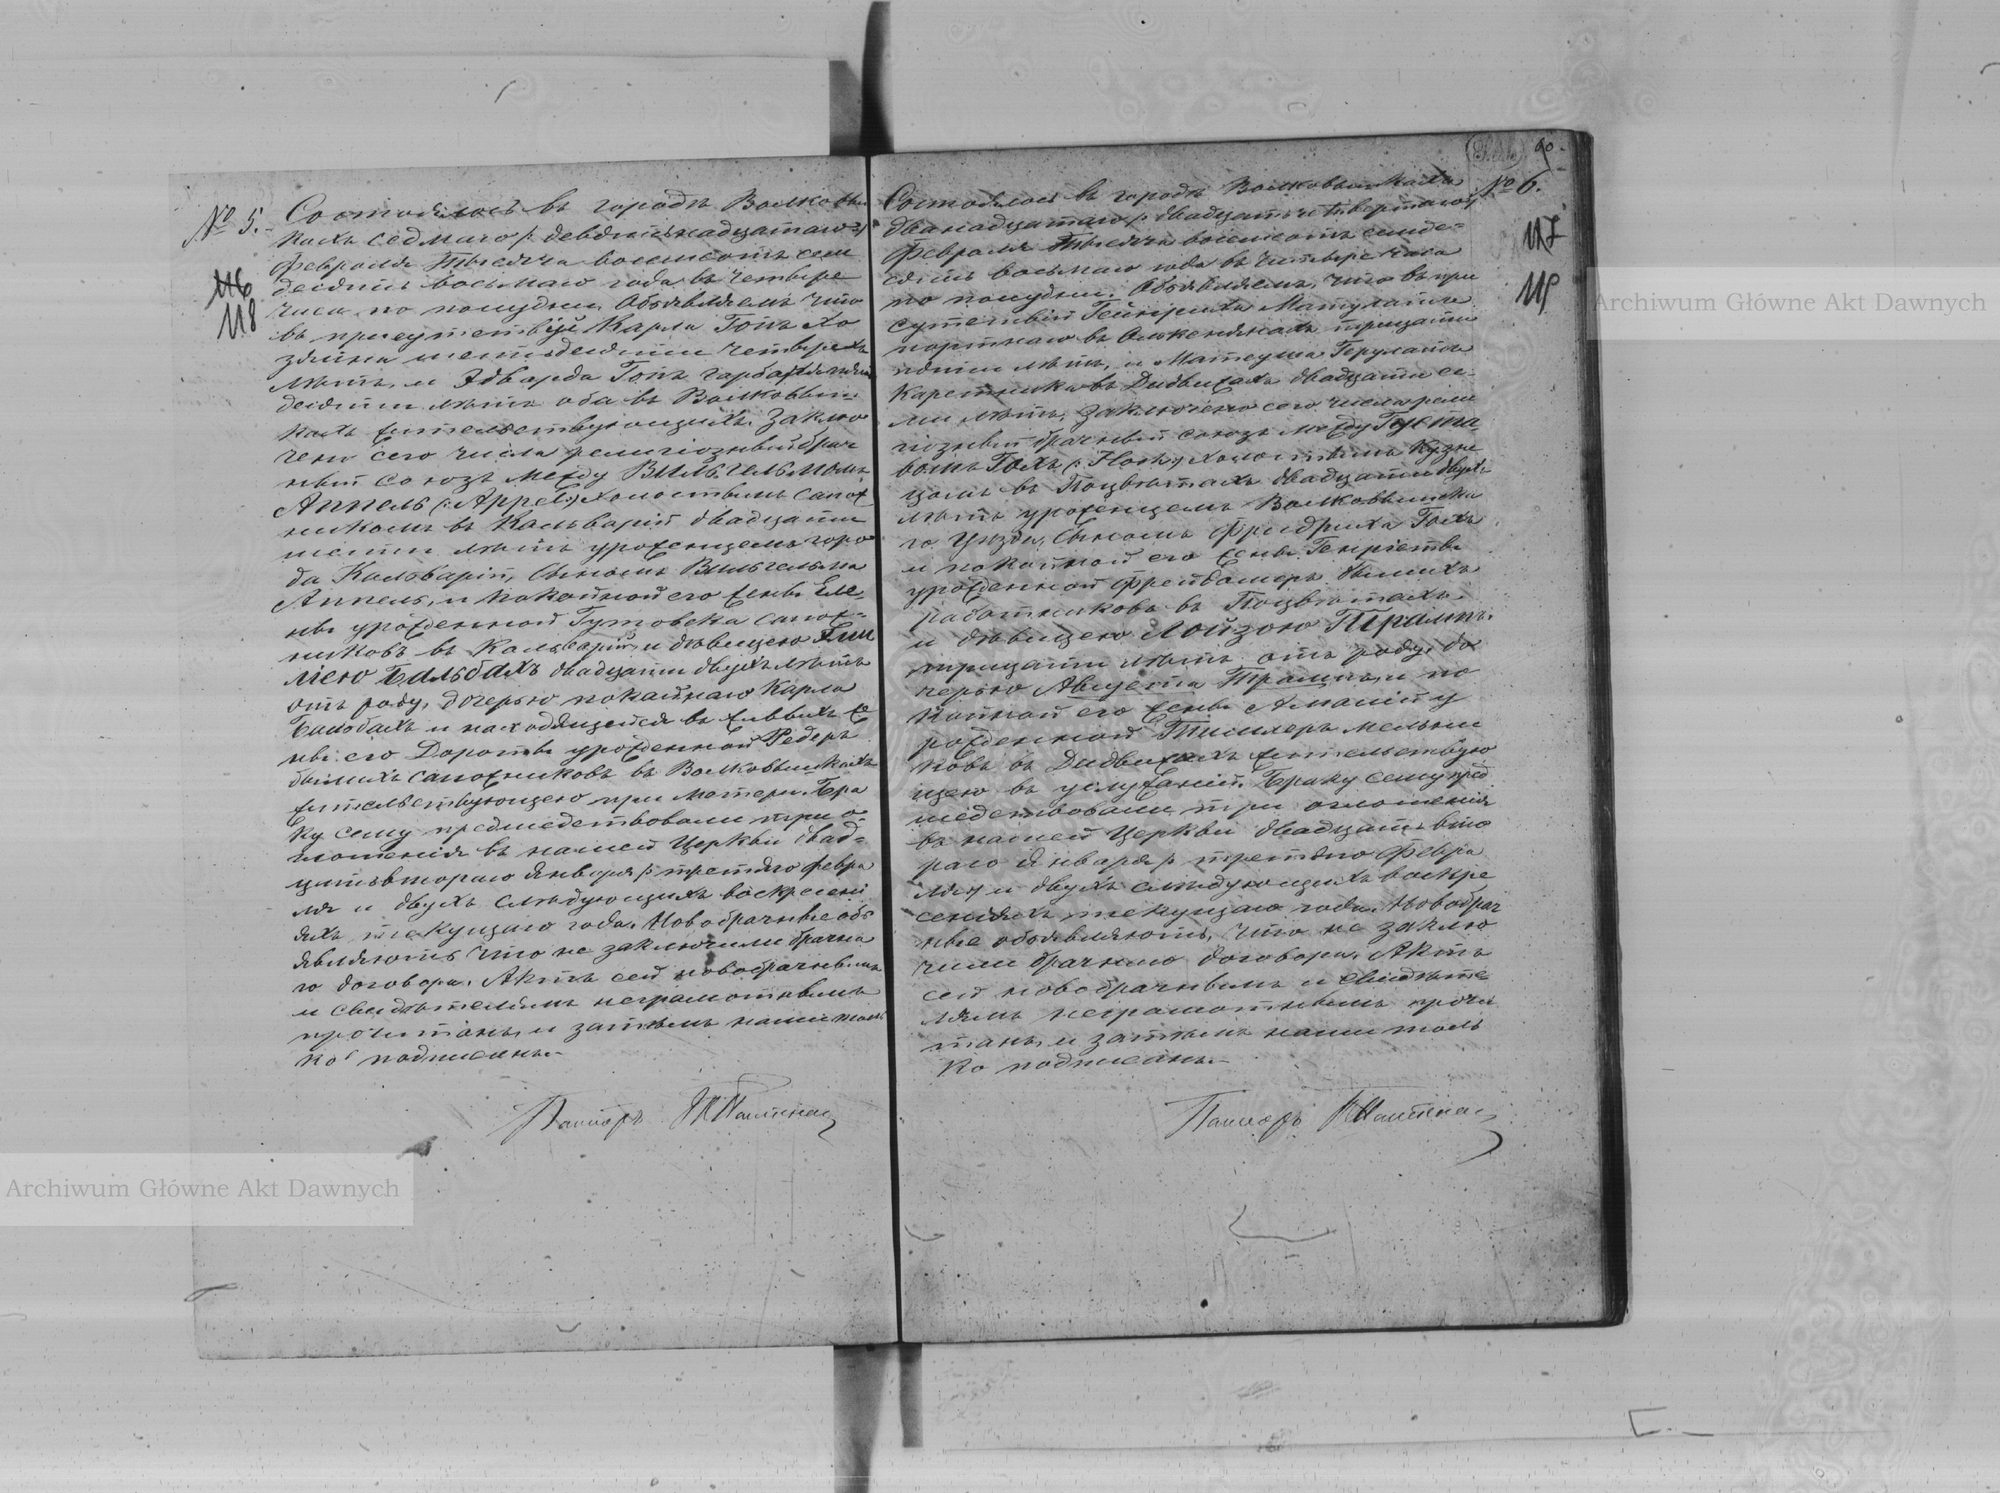 № 5.
116
118
Состоялось въ городѣ Волковы-
кахъ седмаго /: девятьнадцатаго :/
февраля тысяча восемсотъ семь
десятъ восьмаго года въ четыре
часа по полудни. Объявляемъ что
въ присутствіи Карла Гопъ хо
зяина шестьдесяти четырехъ
лѣтъ, и Эдварда Гопъ гарбаря
десяти лѣтъ оба въ Волковыш-
кахъ жительствующихъ. Заклю
ченъ сего числа религіозный брач
ный союзъ между Вильгельмомъ
Аппель (: Appel :) холостымъ сапож
никомъ въ Кальваріи двадцати
шести лѣтъ уроженцемъ горо
да Кальваріи, сыномъ Вильгельма
Аппель, и покойной его жены Еле
ны урожденной Гутовска сапож-
никовъ въ Кальваріи, и дѣвицею Эми
ліею Бальбахъ двадцати двухъ лѣтъ
отъ роду, дочерью покойнаго Карла
Бальбахъ и находящейся въ живыхъ же
ны его Доротеи урожденной Редеръ
бывшихъ сапожниковъ въ Волковышкахъ
жительствующею при матери. Бра
ку сему предшедствовали три о-
глошенія въ нашей Церкви двад-
цать втораго Января /: третяго февра
ля и двухъ слѣдующихъ воскресені
яхъ текущаго года. Новобрачные объ
являютъ что не заключили брачна
го договора. Актъ сей новобрачнымъ
и свидѣтелямъ неграмотнымъ
прочитанъ, и затѣмъ нами толь
ко подписанъ.-
Пасторъ
90
№ 6.
117
119
Состоялось въ городѣ Волковышкахъ
двѣнадцатаго /: двадцать четвертаго :/
февраля тысяча восемсотъ семьде-
сятъ восьмаго года въ четыре часа
по полудни. Объявляемъ, что въ при
сутствіи Гейнриха Матулатъ
портнаго въ Олькснянахъ тридцати
пяти лѣтъ, и Матеуша Герулатъ
каретника въ Дидвижахъ двадцати се-
ми лѣтъ, заключенъ сего числа рели
гіозный брачный союзъ между Густа-
вомъ Гохъ (: Hoch :) холостымъ кузне
цомъ въ Поцвѣтахъ двадцати двухъ
лѣтъ уроженцемъ Волковышска
го Уѣзда, сыномъ Фридриха Гохъ
и покойной его жены Генріетты
урожденной Фрейдамеръ бывшихъ
работниковъ въ Поцвѣтахъ.
и дѣвицею Лойзою Трампъ.
тридцати лѣтъ отъ роду, до
черью Августа Трампъ, и по
койной его жены Амаліи у
рожденной Тиллеръ мельни
ковъ въ Дидвижахъ жительствую
щею въ услуженіи. Браку сему пред
шедствовали три оглошенія
въ нашей Церкви двадцать вто
раго Января /: третяго Февра
ля :/ и двухъ слѣдующихъ воскре
сеніяхъ текущаго года. Новобрач
ные объявляютъ, что не заклю
чили брачнаго договора. Актъ
сей новобрачнымъ и свидѣте
лямъ неграмотнымъ прочи
танъ, и затѣмъ нами толь
ко подписанъ.-
Пасторъ
Archiwum Główne Akt Dawnych
Archiwum Główne Akt Dawnych